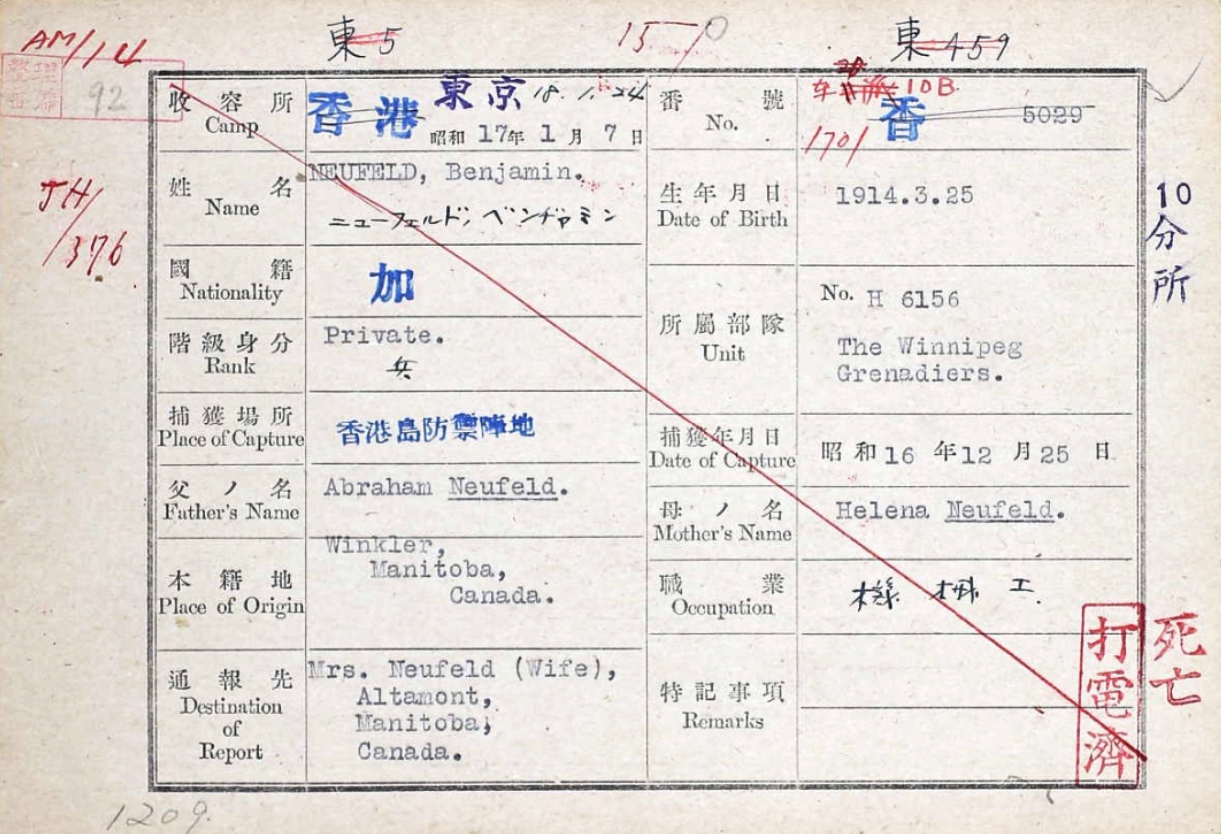 AM/14
東5
15
0
東459
整理
番
92
JH/
376
收容所
Camp
香港 東京 18. 1. 24
昭和 17年 1月 7日
番號
No.
10B
香 5029
1701
姓名
Name
NEUFELD, Benjamin.
ニューフェルド, ベンヂャミン
生年月日
Date of Birth
1914.3.25
國籍
Nationality
加
所屬部隊
Unit
No. H 6156
The Winnipeg
Grenadiers.
10分所
階級身分
Rank
Private.
兵
捕獲場所
Place of Capture
香港島防禦陣地
捕獲年月日
Date of Capture
昭和16年12月25日
父ノ名
Father's Name
Abraham Neufeld.
母ノ名
Mother's Name
Helena Neufeld.
本籍地
Place of Origin
Winkler,
Manitoba,
Canada.
職業
Occupation
機械工
通報先
Destination
of
Report
Mrs. Neufeld (Wife),
Altamont,
Manitoba,
Canada.
特記事項
Remarks
打電濟
死亡
1209.